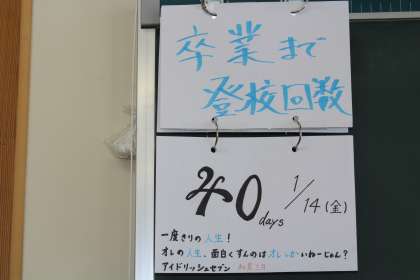 卒業まで
登校回数
40
days
1/14(金)
一度きりの人生!
オレの人生、面白くすんのはオレしかいねーじゃん?
アイドリッシュセブン